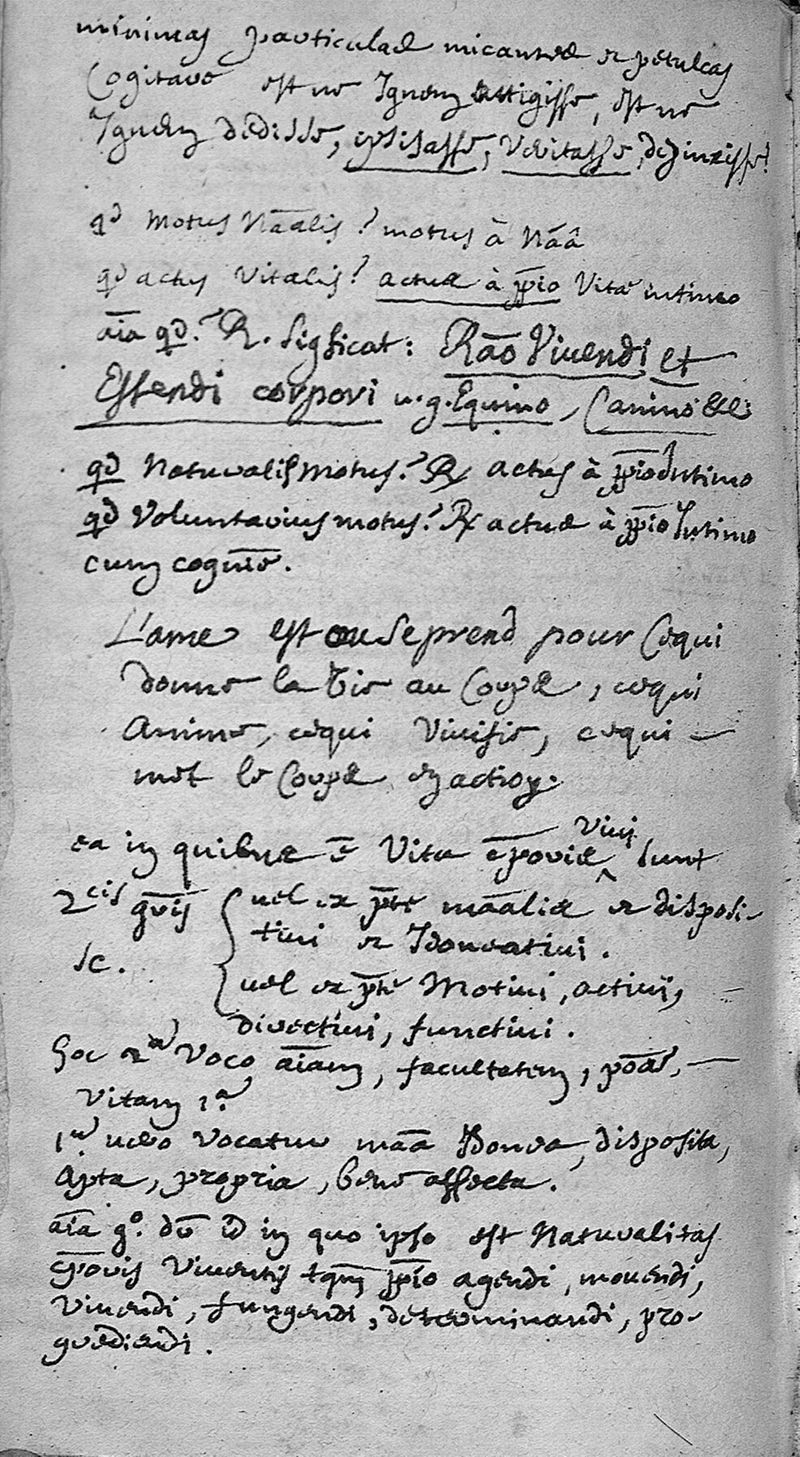 minimas particulas micantes et petulcas
Cogitare est ne Ignem attigisse, est ne
Ignem dedisse, ipsisasse, Veritasse,
qd Motus Nāalis? motus à Nāâ
qd actus Vitalis? actus à ṗpio Vitæ intimo
aīa qd? R. Sigficat: Rāo Vivendi et
Essendi corpori u.g. Equino, Canino &c
qd Naturalis motus? R actus à ppio Intimo
qd Voluntarius motus? R actus à ppio Intimo
cum cogniōe.
L'ame est ou se prend pour Cequi
donne la Vie au Corps, cequi
Anime, cequi Vivifie, cequi —
met le Corps en action.
ea in quibus ē Vita cporis Vivi sunt
2cis gnis { uel ex pte māalis et disposi-
tiui et Idoneatiui.
sc.
uel ex pte Motiui, actiui,
directiui, functiui.
hoc 2m Voco aīam, facultatem, —
Vitam 1a
1m uero Vocatur māa Idonea, disposita,
Apta, propria, bene affecta.
aīa go. dr id in quo ipso est Naturalitas
cporis Viventis tqm ppio agendi, mouendi,
Viuendi, fungendi, determinandi, pro-
grediendi.